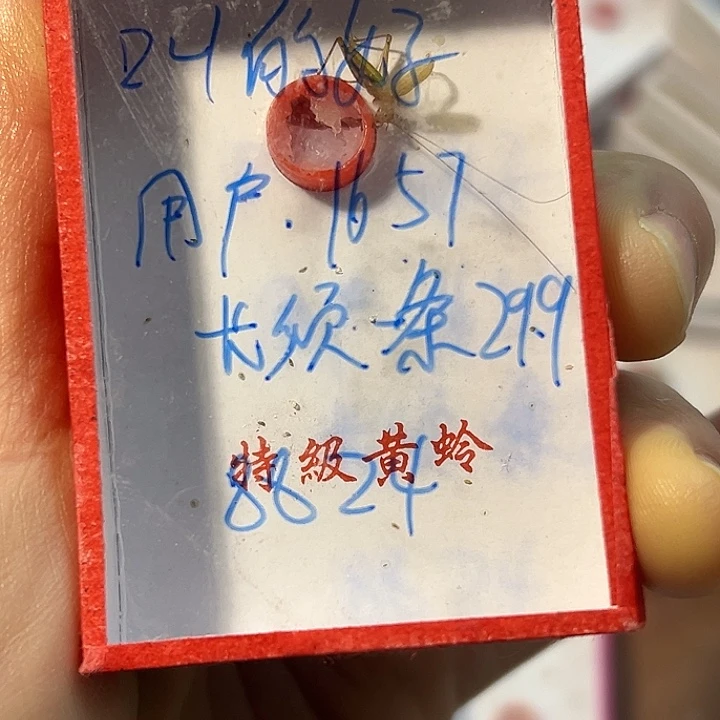 24的好
用户.1657
长须条29.9
特級黄蛉
8824